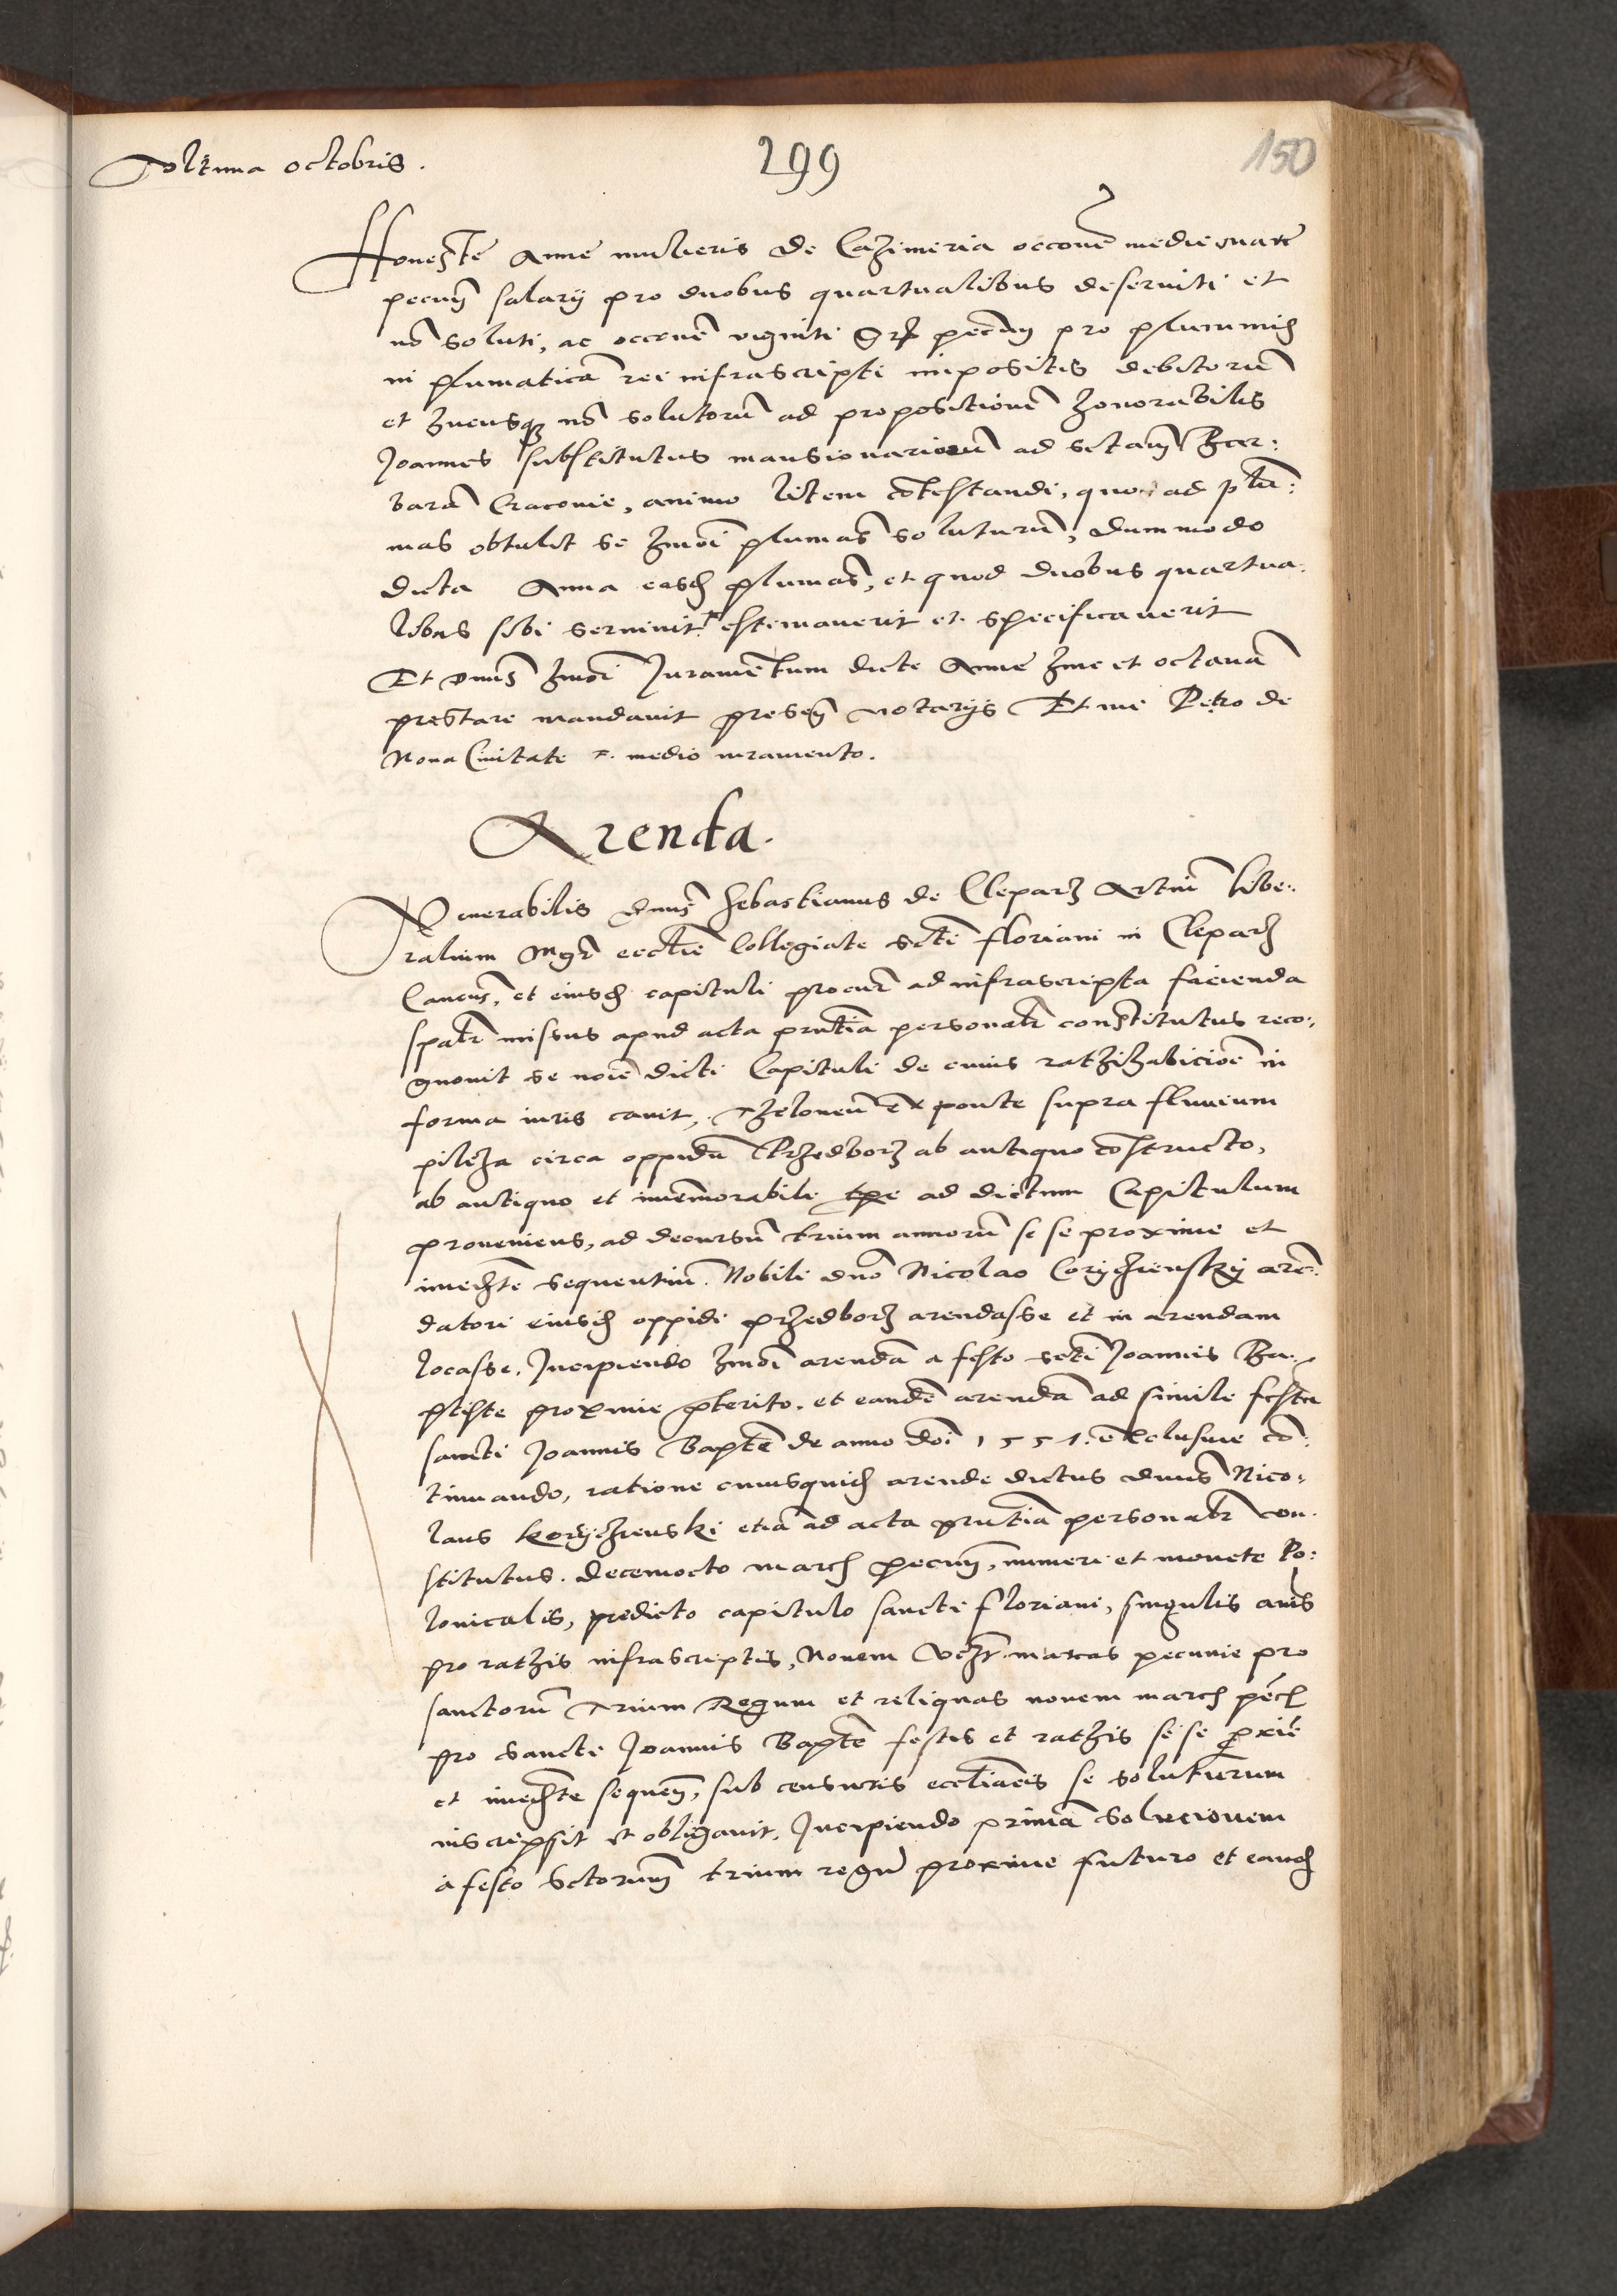 Vltima octobris.
299
150
Honeste Anne mulieris de Cazimeria occone medie marce
pecuń salarij pro duobus quartualibus deserviti et
nō soluti, ac occone viginti gr pecuń pro plumis
in plumaticā rei infrascripte impositis debitorū
et hucusq nō solutorū ad propositionē honorabilis
Joannes substitutus mansionariorū ad sctam Bar:
barā Cracovie, animo litem cōtestandi, quo ad plu:
mas obtulit se hmōi plumas soluturū, dummodo
dicta Anna easdē plumas, et quod duobus quartua:
libus sibi servivit estimaverit et specificaverit
Et dnus hmōi Juramentum dicte Anne hinc et octavā
prestare mandavit presen notarijs Et me Petro de
Nova Civitate medio iuramento.
Arenda.
Venerabilis dnus Sebastianus de Cleparz Artiū libe:
ralium Mgr ecctie Collegiate scti floriani in Cleparz
Canous, et eiusdē capituli procur ad infrascripta facienda
spatr missus apud acta pntia personatr constitutus reco:
gnovit se noie dicti Capituli de cuius rathihabicioe in
forma iuris cavit, Theloneū ex ponte supra fluvium
pilcza circa oppidū Przedborz ab antiquo cōstructo,
ab antiquo et immemorabili tpe ad dictum Capitulum
proveniens, ad decursū trium annorū se se proxime et
imediate sequentiū. Nobili dno Nicolao Corycziensky aren:
datori eiusdē oppidi przedborz arendasse et in arendam
locasse, Incipiendo hmōi arendā a festo scti Joannis Ba:
ptiste proxime pterito, et eandē arendā ad simile festū
sancti Joannis Bapte de anno dni 1551. exclusive cō:
tinuando, ratione cuiusquid arende dictus dnus Nico:
laus Koryczienski etiā ad acta pntia personatr con:
stitutus. decemocto march pecuń, numeri et monete Po:
lonicalis, predicto capitulo sancti Floriani, singulis anis
pro rathis infrascriptis, Novem vczr marcas pecunie pro
sanctorū Trium Regum et reliquas novem march pecu
pro sancti Joannis Bapte festis et rathis se se pxie
et imediate sequen, sub censuris eccliacis se soluturum
inscripsit et obligavit, Incipiendo primā solucionem
a festo Sctorum trium regū proxime futuro et eandē